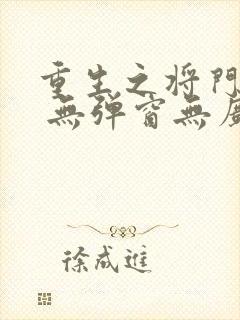 重生之将門
無弹窗無
徐成進